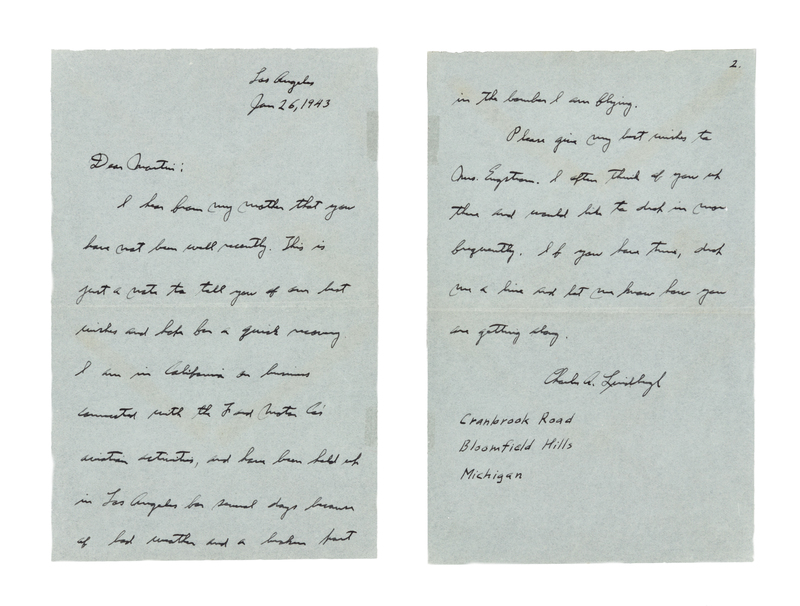 Los Angeles
Jan 26, 1943
Dear Martin:
I hear from my mother that you
have not been well recently. This is
just a note to tell you of our best
wishes and hope for a quick recovery
I am in California on business
connected with the Ford Motor Co's
aviation activities, and have been held up
in Los Angeles for several days because
of bad weather and a broken part
2.
in the bomber I am flying.
Please give my best wishes to
Mrs. Engstrom. I often think of you up
there and would like to drop in more
frequently. If you have time, drop
me a line and let me know how you
are getting along.
Charles A. Lindbergh
Cranbrook Road
Bloomfield Hills
Michigan